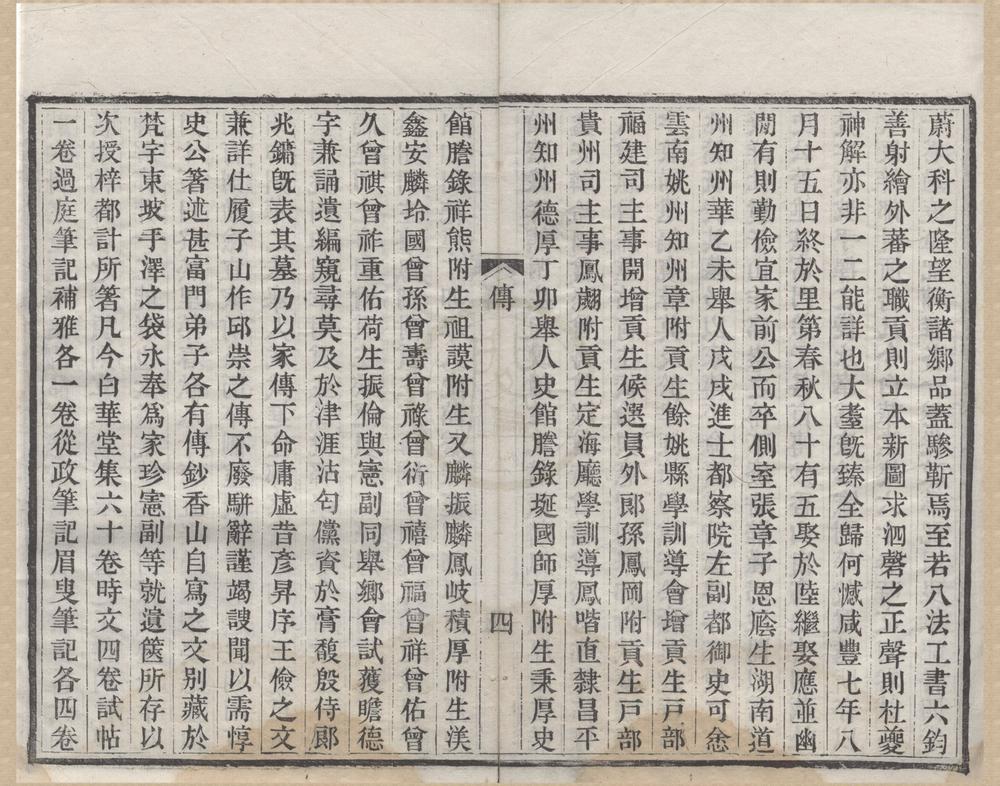 蔚大科之隆望衡諸鄉品蓋驂靳焉至若八法工書六鈞
善射繪外蕃之職貢則立本新圖求泗磬之正聲則杜夔
神解亦非一二能詳也大耋旣臻全歸何憾咸豐七年八
月十五日終於里第春秋八十有五娶於陸繼娶應並幽
閒有則勤儉宜家前公而卒側室張章子恩廕生湖南道
州知州華乙未舉人戊戌進士都察院左副都御史可悆
雲南姚州知州章附貢生餘姚縣學訓導會增貢生戸部
福建司主事開增貢生候選員外郎孫鳳岡附貢生戸部
貴州司主事鳳翽附貢生定海廳學訓導鳳喈直隸昌平
州知州德厚丁卯舉人史館謄錄埏國師厚附生秉厚史
傳
四
館謄錄祥熊附生祖謨附生又麟振麟鳳岐積厚附生渼
鑫安麟坽國曾孫曾壽曾祿曾衍曾禧曾福曾祥曾佑曾
久曾祺曾祚重佑荷生振倫與憲副同舉鄉會試獲瞻德
字兼誦遺編窺尋莫及於津涯沾匄儻資於膏馥殷侍郎
兆鏞旣表其墓乃以家傳下命庸虛昔彥昇序王儉之文
兼詳仕履子山作邱崇之傳不廢駢辭謹竭謏聞以需惇
史公箸述甚富門弟子各有傳鈔香山自寫之文别藏於
梵宇東坡手澤之袋永奉爲家珍憲副等就遺篋所存以
次授梓都計所箸凡今白華堂集六十卷時文四卷試帖
一卷過庭筆記補雅各一卷從政筆記眉叟筆記各四卷